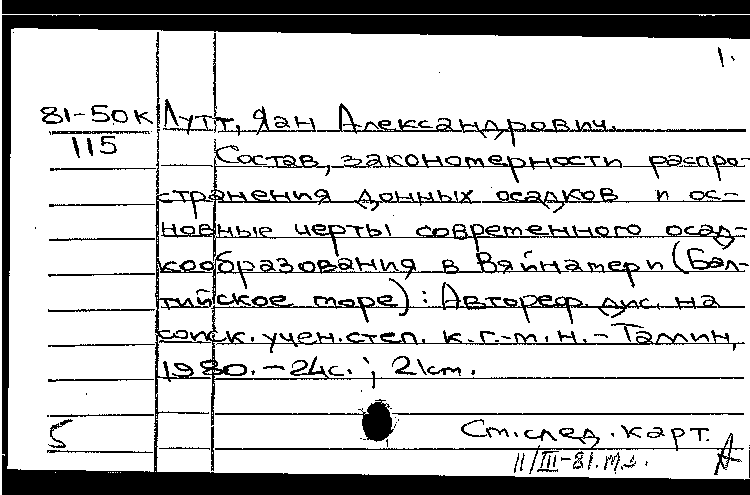 1.
81-50К Лутт, Яан Александрович.
115 Состав, закономерности распро-
странения донных осадков и ос-
новные черты современного осад-
кообразования в Вяйнамери (Бал-
тийское море): Автореф. дис. на
соиск. учен. степ. к. г.-м. н. - Таллин,
1980. - 24с.; 21см.
5 См. след. карт.
11/III-81. А